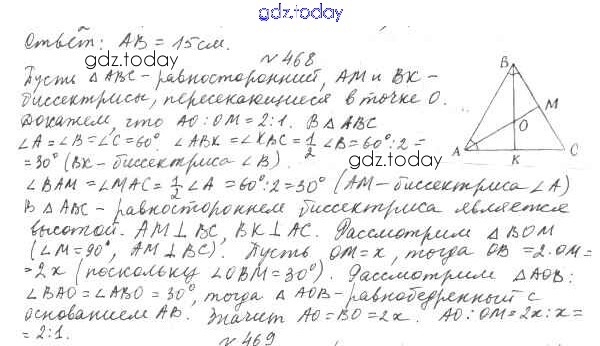 gdz.today
Ответ: AB = 15 см.
gdz.today
№ 468
Пусть △ABC - равносторонний, AM и BK -
биссектрисы, пересекающиеся в точке O.
Докажем, что AO : OM = 2:1. В △ABC
∠A = ∠B = ∠C = 60°. ∠ABK = ∠KBC = 1/2 ∠B = 60° : 2 =
= 30° (BK - биссектриса ∠B).
gdz.today
∠BAM = ∠MAC = 1/2 ∠A = 60° : 2 = 30° (AM - биссектриса ∠A)
В △ABC - равностороннем биссектриса является
высотой. AM ⊥ BC, BK ⊥ AC. Рассмотрим △BOM
(∠M = 90°, AM ⊥ BC). Пусть OM = x, тогда OB = 2·OM =
= 2x (поскольку ∠OBM = 30°). Рассмотрим △AOB:
∠BAO = ∠ABO = 30°, тогда △AOB - равнобедренный с
основанием AB. Значит AO = BO = 2x. AO : OM = 2x : x =
= 2:1.
№ 469
gdz.today
B
M
O
A
K
C